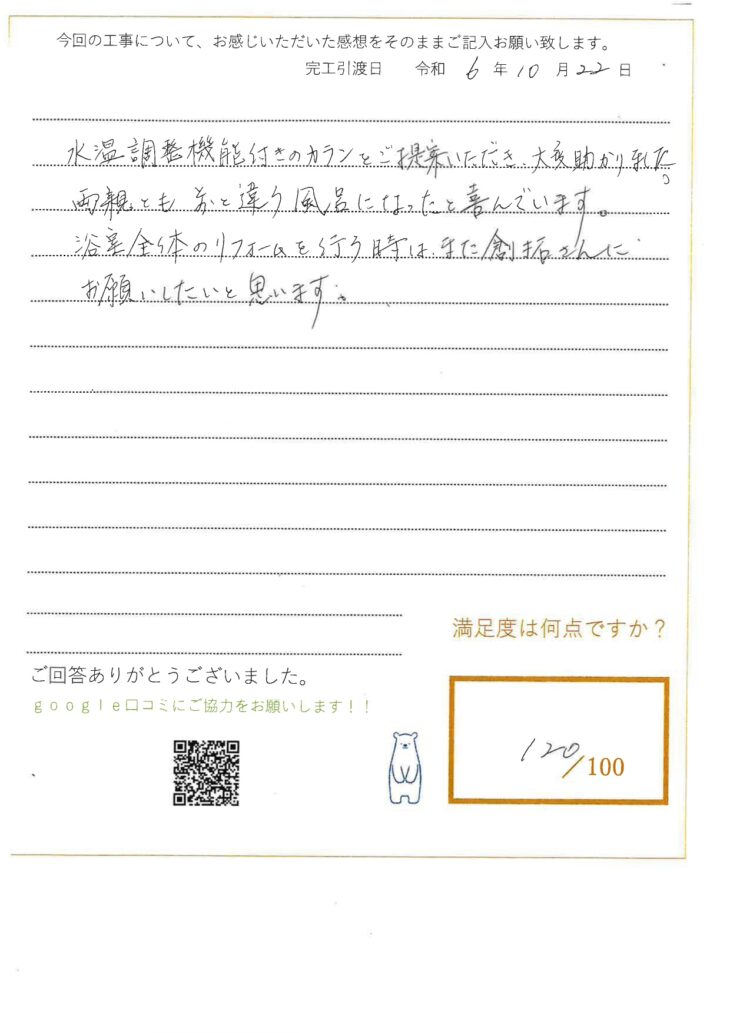 今回の工事について、お感じいただいた感想をそのままご記入お願い致します。
完工引渡日 令和 6 年 10 月 22 日
水温調整機能付きのカランをご提案いただき、大変助かりました。
両親とも 前と違う風呂になったと喜んでいます。
浴室全体のリフォームを行う時は、また創拓さんに
お願いしたいと思います。
満足度は何点ですか？
ご回答ありがとうございました。
google口コミにご協力をお願いします！！
120/100